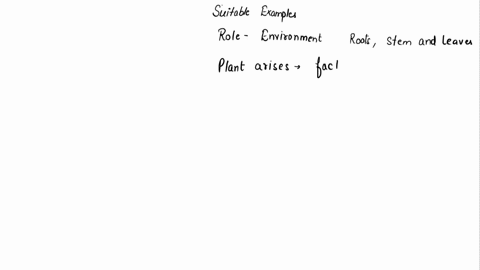 Suitable Examples
Role - Environment Roots, Stem and leaves
Plant arises → fact